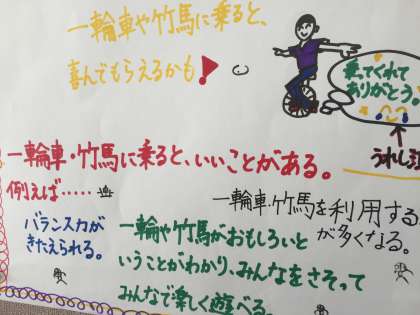 一輪車や竹馬に乗ると、
喜んでもらえるかも!
乗ってくれて
ありがとう。
一輪車・竹馬に乗ると、いいことがある。
例えば……
バランス力が
きたえられる。
一輪車・竹馬を利用する
が多くなる。
一輪や竹馬がおもしろいと
いうことがわかり、みんなをさそって
みんなで楽しく遊べる。